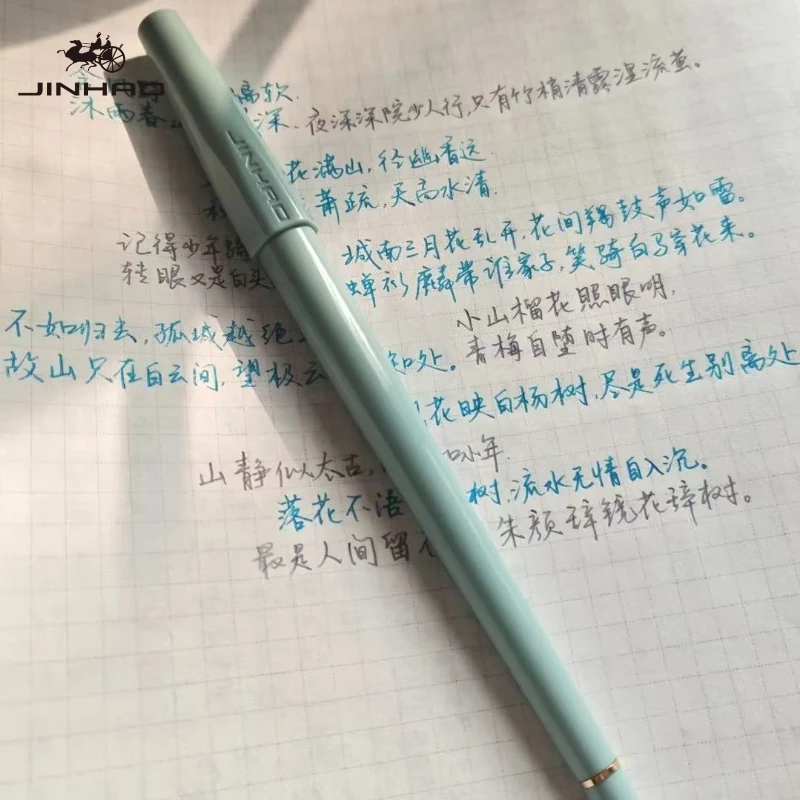 JINHAO
离软.
沐雨春 深、夜深深院少人行,只有竹梢清露湿流萤。
JINHAO
花满山,径幽香远
萧疏,天高水清.
记得少年骑
转眼又是白头
城南三月花乱开,花间羯鼓声如雷。
蝉衫麟带谁家子,笑骑白马穿花来。
小山榴花照眼明.
青梅自堕时有声。
不如归去,孤城越绝
故山只在白云间,望极云 知处。
花映白杨树,尽是死生别离处
山静似太古, 小年.
落花不语 树,流水无情自入沉。
最是人间留 朱颜辞镜花辞树。